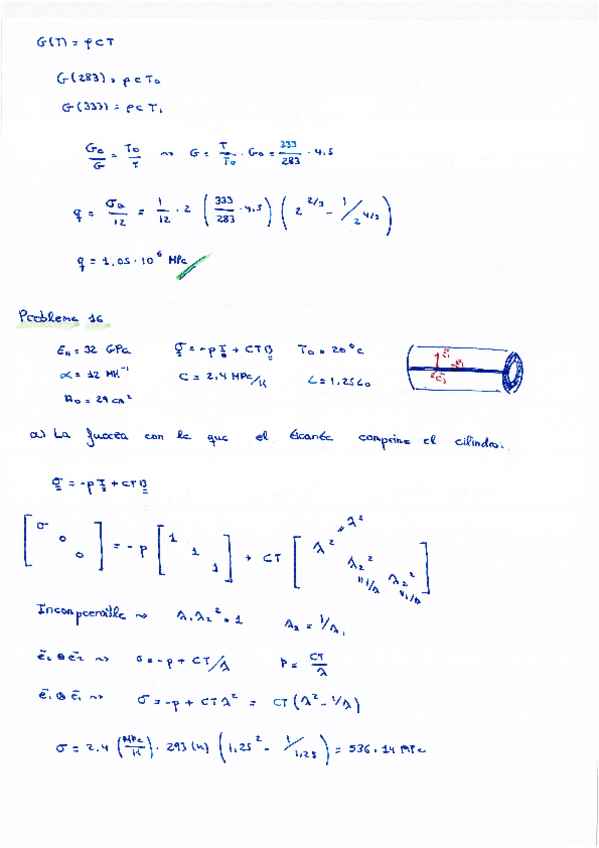 G(T) = ρcT
G(283) = ρcT₀
G(333) = ρcT₁
G₀/G = T₀/T ⇝ G = T/T₀ · G₀ = 333/283 · 4.5
q = σ₀/12 = 1/12 · 2 (333/283 · 4.5) (2^2/3 - 1/2^4/3)
q = 1.05 · 10⁶ MPa
Problema 16
= 32 GPa σ = -pI + CTB T₀ = 20°C
α = 12 MK⁻¹ C = 2.4 MPa/K L = 1.25L₀
= 29 cm²
a) La fuerza con la que el tirante comprime el cilindro.
σ = -pI + CTB
[σ 0 0] = -p [1 1 1] + CT [λ² λ² λ₂² "1/λ λ₂² "1/λ]
Incompresible ⇝ λ·λ₂² = 1 λ₂ = 1/λ₁
ē₂⊗ē₂ ⇝ = -p + CT/λ p = CT/λ
ē₁⊗ē₁ ⇝ σ = -p + CTλ² = CT(λ² - 1/λ)
σ = 2.4 (MPa/K) · 293 (K) (1.25² - 1/1.25) = 536.14 MPa